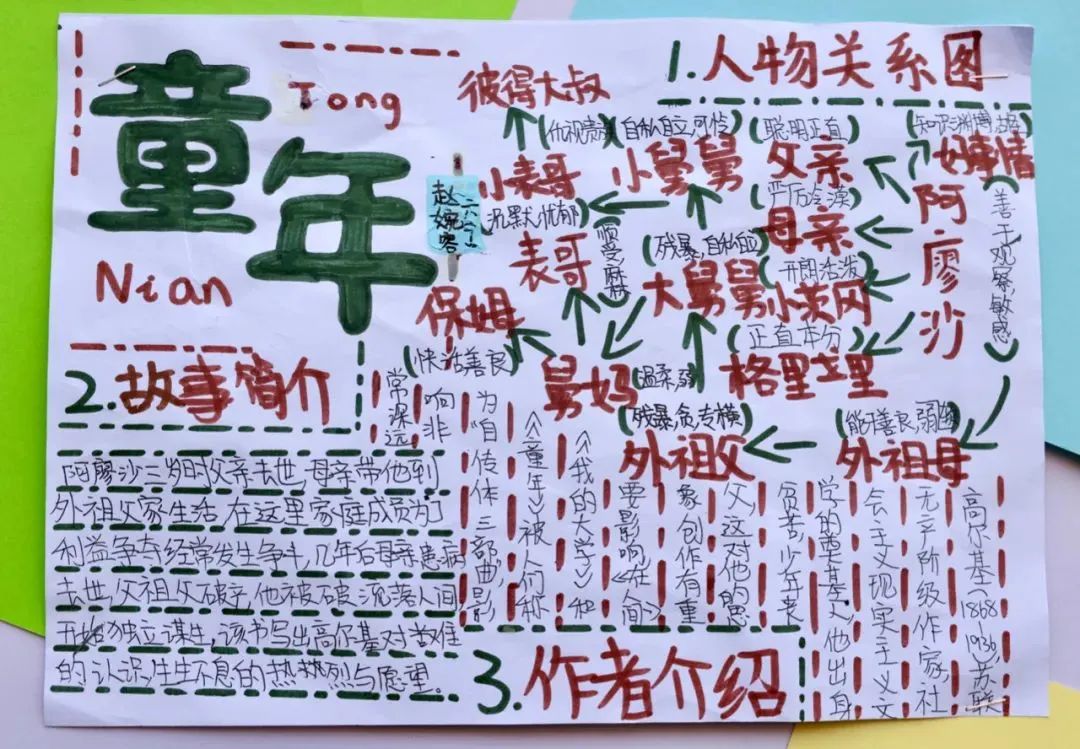 童年
Tong
Nian
赵婉容
六(7)
1.人物关系图
彼得大叔
(自私自立,可怜
(聪明正直)
小表哥
小舅舅
父亲
好事情
沉默,忧郁)
严厉冷漠)
阿廖沙
善于观察,敏感
表哥
残暴,自私
母亲
开朗活泼
保姆
大舅舅
小茨冈
(正直本分)
(快活善良)
舅妈
格里戈里
(残暴,贪,专横)
外祖父
外祖母
2.故事简介
阿廖沙三岁时父亲去世,母亲带他到
外祖父家生活,在这里家庭成员为了
利益争夺经常发生争斗,几年后母亲患病
去世,外祖父破产,他被破,沉落人间,
开始独立谋生,该书写出高尔基对苦难
的认识,生生不息的热烈与愿望。
3.作者介绍
高尔基(1868
1936),苏联
无产阶级作家,社
会主义现实主义文
学的奠基人,他出身
贫苦,少年丧
父,这对他的思
象创作有重
要影响《在人间》
《我的大学》和
《童年》被人们称
为“自传体三部曲”,影
响非
常深远